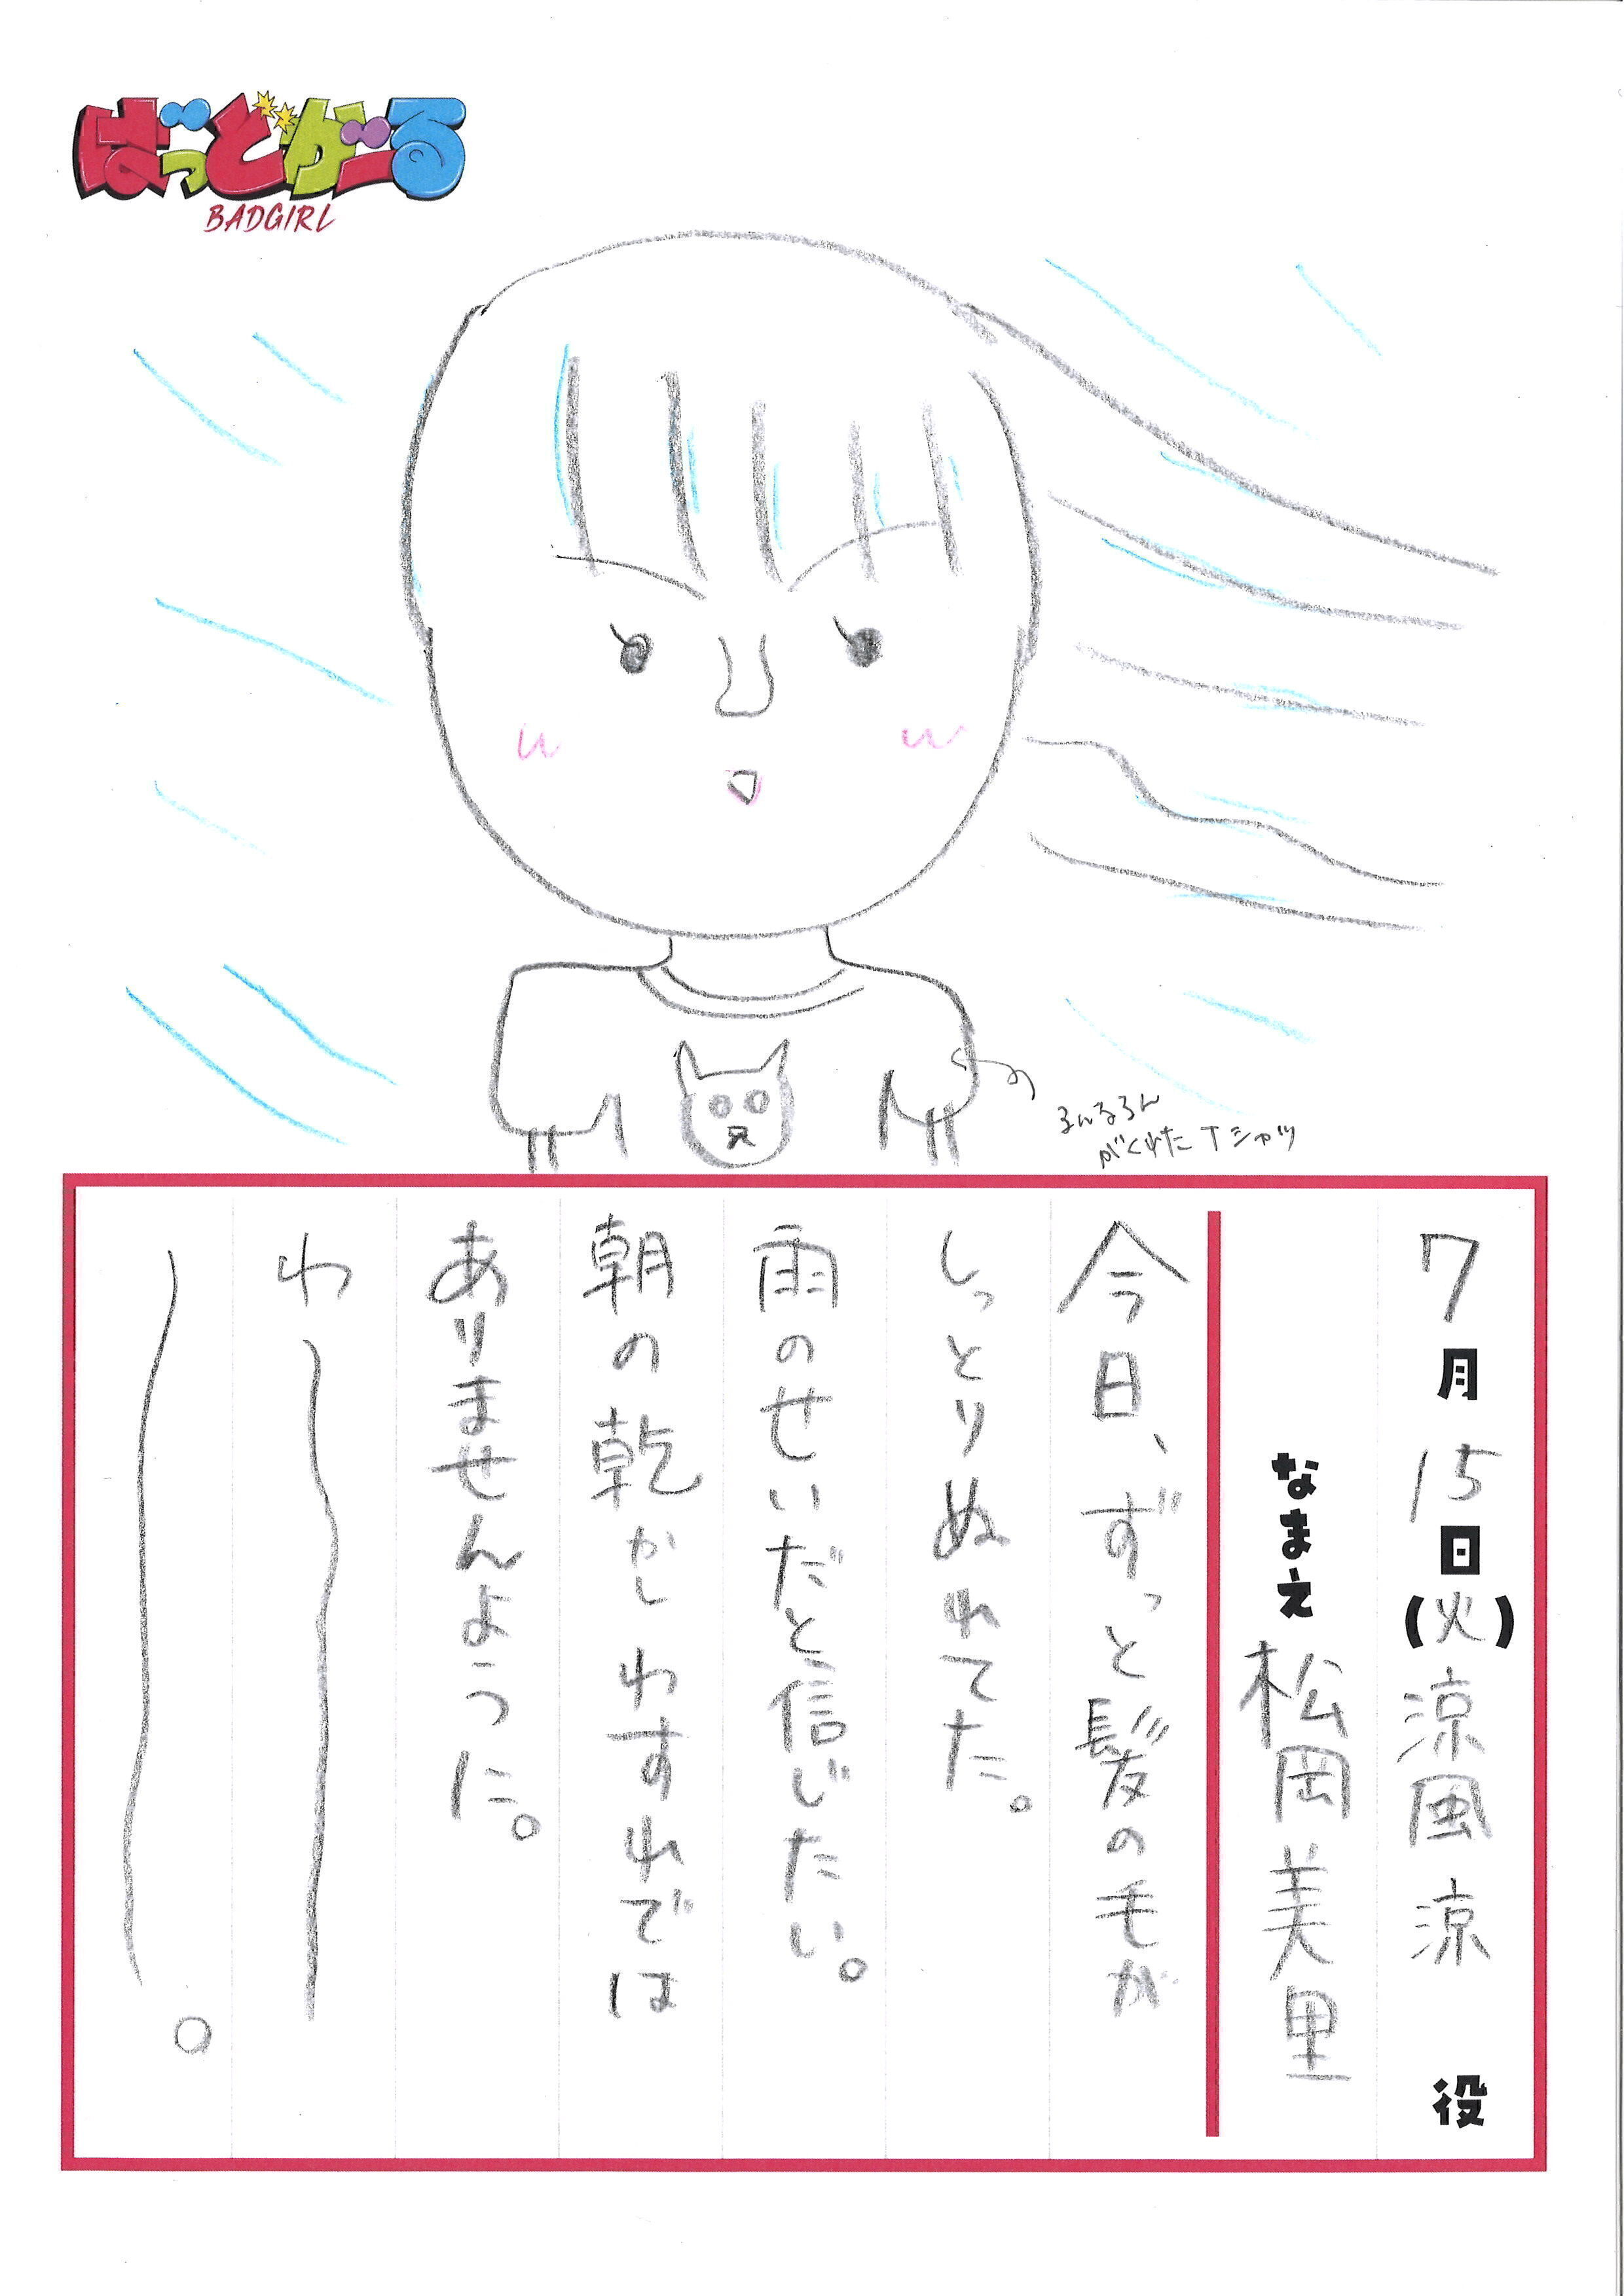 ばっどがーる
BADGIRL
るんるん
がくれたTシャツ
7月15日(火)涼風 涼 役
なまえ 松岡美里
今日、ずっと髪の毛が
しっとりぬれてた。
雨のせいだと信じたい。
朝の乾かしわすれでは
ありませんように。
わー
ー。